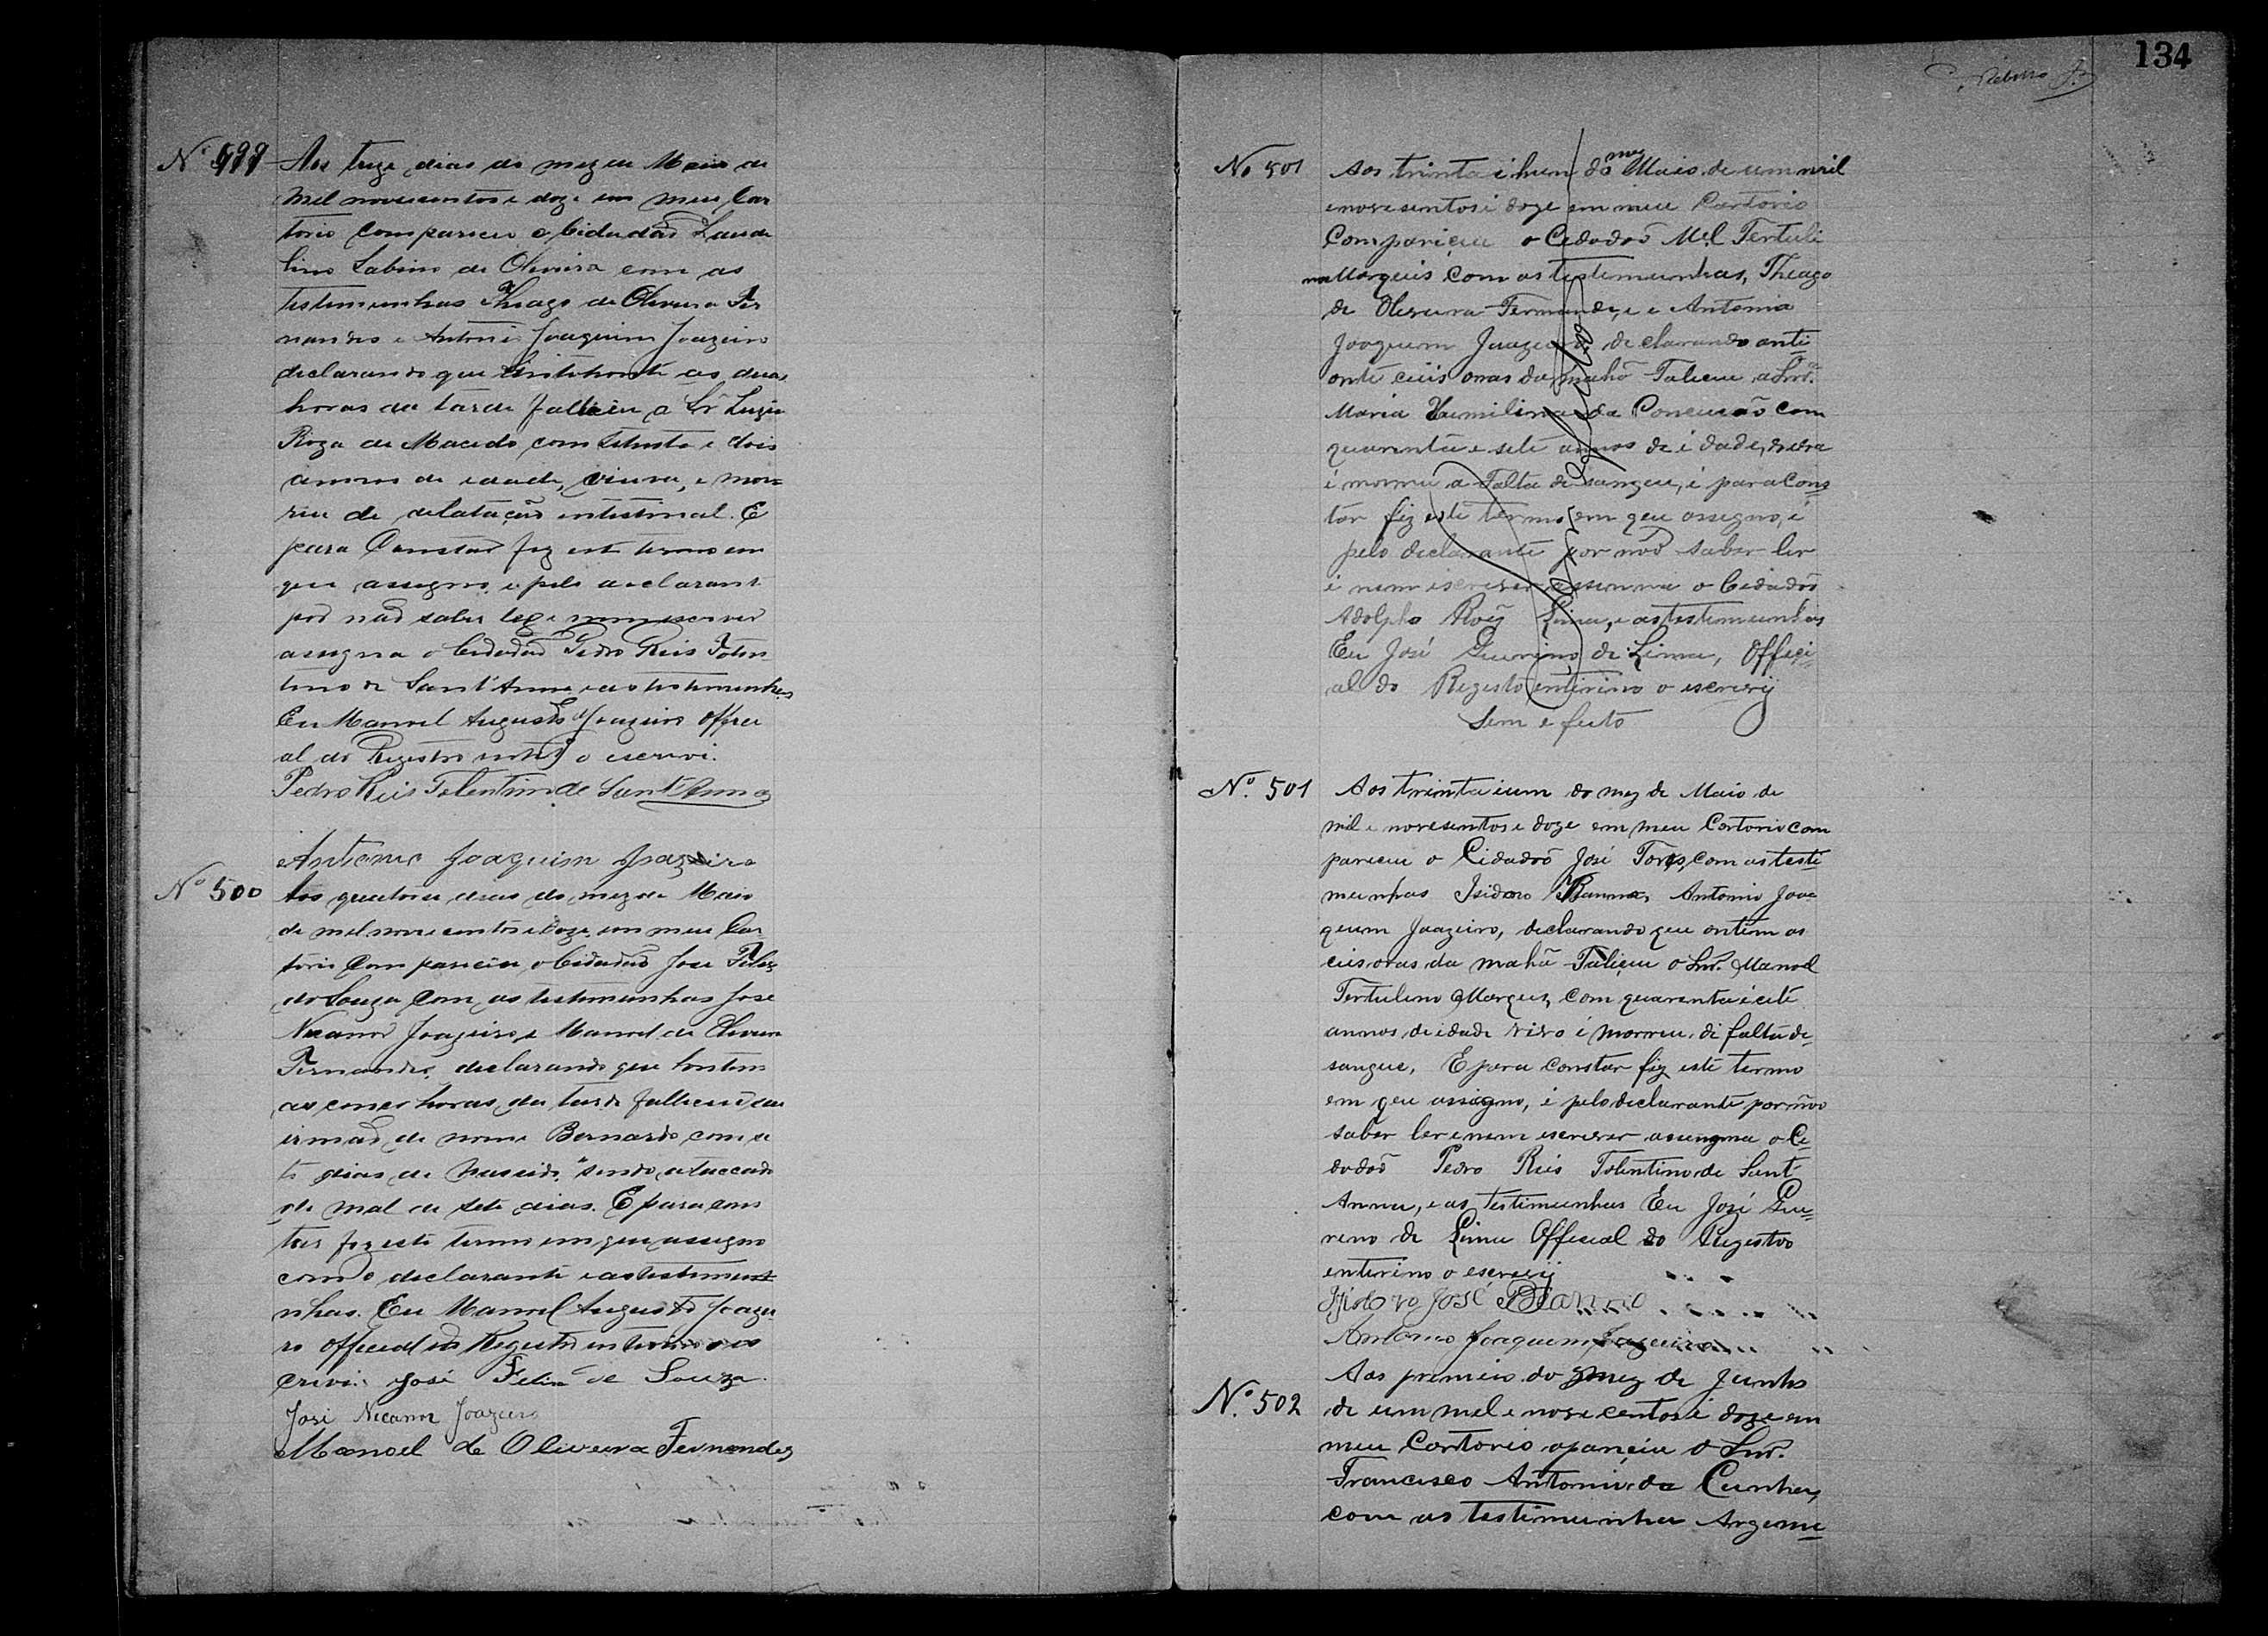 134
Nº 499 Aos treze dias do mez de Maio de
mil novecentos e doze em meu Car
torio compareceu o Cidadão Laude
lino Sabino de Oliveira com as
testimunhas Thiago de Oliveira Fer
nandes e Antonio Joaquim Joazeiro
declarando que as duas
horas da tarde falleceu a Srª Luzia
Roza de Macedo com setenta e dois
annos de idade, viuva, e mor=
reu de delatação intestinal. E
para Constar fiz este termo em
que assigno, e pelo declarant
por não saber ler e nem escrever
assigna o Cidadão Pedro Reis Tolen
tino de Sant'Anna e as testimunhas
Eu Manoel Augusto Joazeiro offici
al do Registro intº o escrevi.
Pedro Reis Tolentino de Sant'Anna
Antonio Joaquim Joazeiro
Nº 500 Aos quatorze dias do mez de Maio
de mil nove centos e doze em meu Car
torio Compareceu o Cidadão José Felix
de Souza Com as testimunhas José
Nicanor Joazeiro e Manoel de Oliveira
Fernandes, declarando que hontem
as cinco horas da tarde falleceu seu
irmão de nome Bernardo, com se
te dias de nascido, sendo attaccado
de mal de sete dias. E para cons
tar fiz este termo em que assigno
com o declarante e as testimu
nhas. Eu Manoel Augusto Joazei
ro official do Registro interino o es
crevi. José Felix de Souza.
José Nicanor Joazeiro
Manoel de Oliveira Fernandes
No 501 Aos trinta i hum do mez Maio de um mil
e novesentos i doze em meu Cartorio
Compariceu o Cidadão Mel Tertuli
no Marques com as testimunhas, Theago
de Oliveira Fernandes e Antonio
Joaquim Juazeiro, declarando anti
onte ceis oras da mahã Faliceu a Snrª
Maria Humilina da Conceicão Com
quarenta e sete annos de idade,
i morreu a Falta de sangue, i para Cons
tar fiz este termo em que assegno, i
pelo declarante por não saber ler
i nem iscrever assenna o Cidadão
Adolpho Lima, e as testemunhas
Eu José Guerino de Lima, Offici
al do Registo enterino o escrevij
Sem e feito
Sem efeito
Nº. 501 Aos trinta i um do mez de Maio de
mil e novesentos e doze em meu Cartorio com
pareceu o Cidadão José Tores, com as teste
munhas Isidoro Antonio Joaa
quim Joazeiro, declarando que ontem as
ceis oras da mahã Faliceu o Snr. Manoel
Tertulino Marques, com quarenta i cete
annos de idade i morreu di falta de
sangue, E para constar fiz este termo
em que assigno, i pelo declarante por não
saber ler e nem escrever assengna o Ce
dadão Pedro Reis Tolentino de Sant
Anna, e as Testimunhas Eu José Gue
reno de Lima Official do Registro
enterino o escrevij
Isidoro José
Antonio Joaquim Joazeiro
Nº. 502 Aos primeiro do mez de Junho
de um mil e nove centos i doze em
meu Cartorio apareceu o Snr.
Francisco Antonio da Cunha,
com as testimunha Argeme